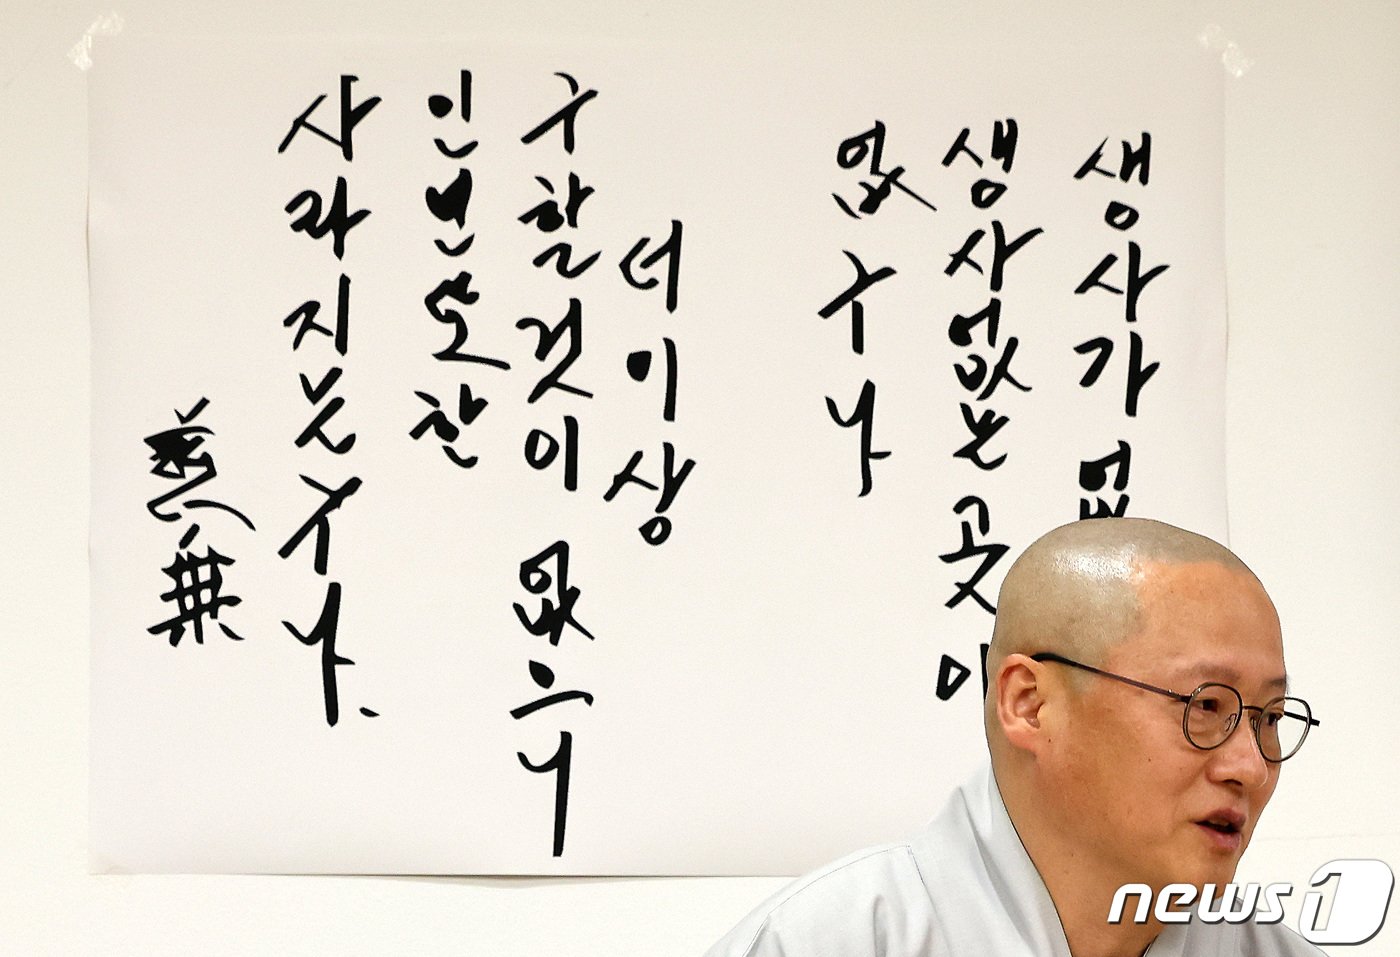 생사가 없
생사없는 곳이
없구나
더이상
구할것이 없으니
인연또한
사라지는구나.
news1